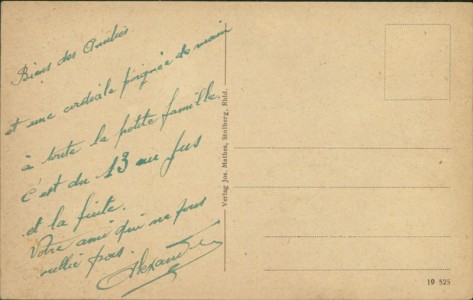 Biens des Amitiés
et une cordiale poignée de main
à toute la petite famille.
C'est du 13 au jus
et la fuite.
Votre ami qui ne vous
oublie pas. Alexandre
Verlag Jos. Mathes, Stolberg, Rhld.
19 525